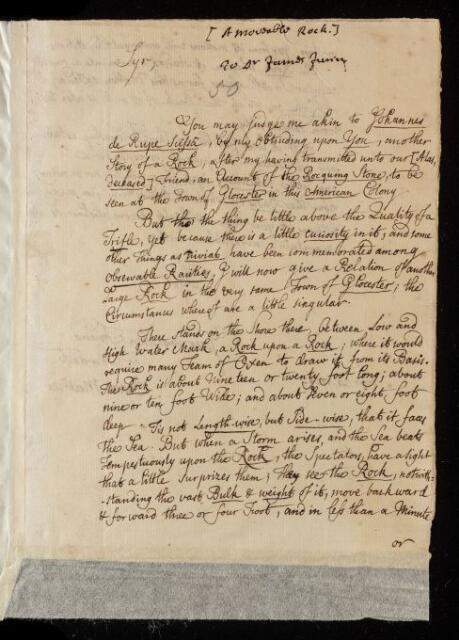 [A moveable Rock.]
Syr,
To Dr James Jurin
50
You may judge me akin to Johannes
de Rupe Scissâ, by my obtruding upon You, another
Story of a Rock, after my having transmitted unto our [Alas,
deceased] Friend, an Account of the Rocquing Stone, to be
seen at the Town of Glocester in this American Colony
But tho' the thing be little above the Quality of a
Trifle, yet because there is a little curiosity in it, and some
other things as trivial, have been commemorated among
Observable Rarities, I will now give a Relation of another
Large Rock in the very same Town of Glocester; the
Circumstances whereof are a little singular.
There stands on the Shore there, between Low and
High Water Mark, a Rock upon a Rock; where it would
require many Team of Oxen to draw it from its Basis.
The Rock is about Nineteen or twenty foot long; about
nine or ten foot Wide; and about seven or eight foot
deep. 'Tis not Length-wise, but Side-wise, that it faces
the Sea. But when a Storm arises, and the Sea beats
Tempestuously upon the Rock, the Spectators have a sight
that a little Surprizes them; They see the Rock, notwith=
=standing the vast Bulk & weight of it, move backward
& forward three or four Foot, and in less than a Minute
or